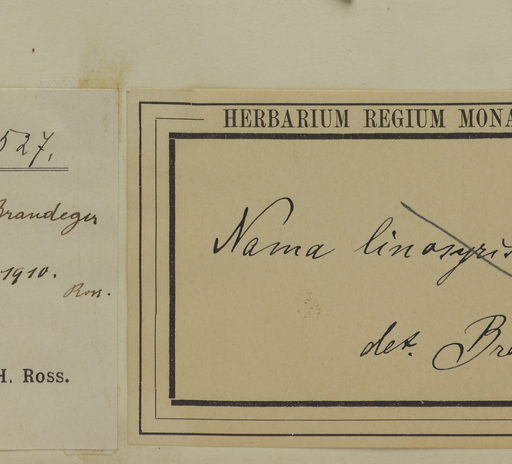 527.
Brandeger
1910.
Ross.
H. Ross.
HERBARIUM REGIUM MONA
Nama linosyris
det. Bra